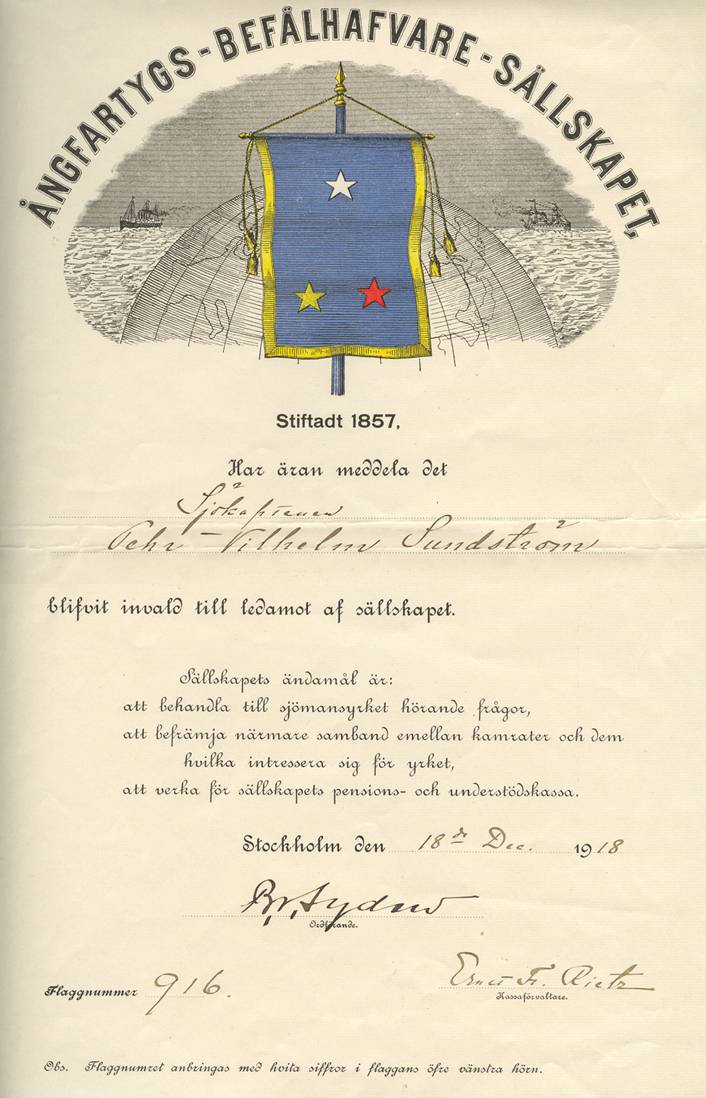 ÅNGFARTYGS-BEFÄLHAFVARE-SÄLLSKAPET,
Stiftadt 1857,
Har äran meddela det
Sjökaptenen
Pehr-Vilhelm Sundström
blifvit invald till ledamot af sällskapet.
Sällskapets ändamål är:
att behandla till sjömansyrket hörande frågor,
att befrämja närmare samband emellan kamrater och dem
hvilka intressera sig för yrket,
att verka för sällskapets pensions- och understödskassa.
Stockholm den 18de Dec. 1918
Ordförande.
Ernst Fr. Rietz
Flaggnummer 916.
Kassaförvaltare.
Obs. Flaggnumret anbringas med hvita siffror i flaggans öfre vänstra hörn.